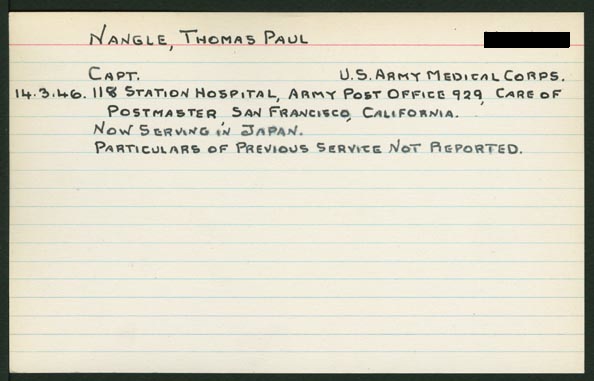 NANGLE, THOMAS PAUL
CAPT. U.S. ARMY MEDICAL CORPS.
14.3.46. 118 STATION HOSPITAL, ARMY POST OFFICE 929, CARE OF
POSTMASTER, SAN FRANCISCO, CALIFORNIA.
NOW SERVING IN JAPAN.
PARTICULARS OF PREVIOUS SERVICE NOT REPORTED.